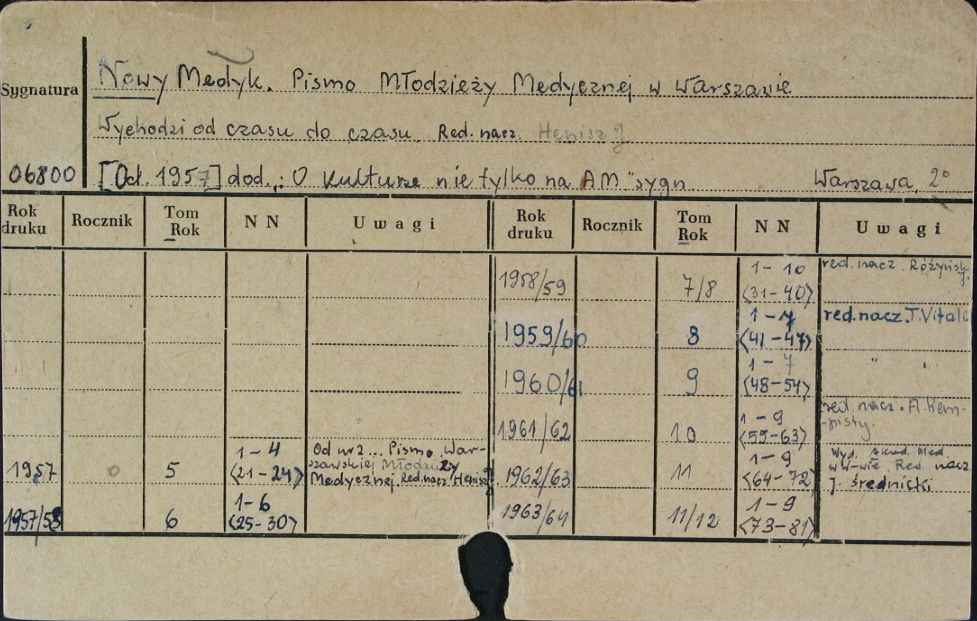 Nowy Medyk. Pismo Młodzieży Medycznej w Warszawie
Sygnatura
Wychodzi od czasu do czasu. Red. nacz. Henisz J
06800 [Od. 1957] dod.: O kulturze nie tylko na AM "sygn Warszawa, 2°
Rok druku Rocznik Tom Rok NN Uwagi Rok druku Rocznik Tom Rok NN Uwagi
1958/59 7/8 1-10 <31-40> red. nacz. Różyńsk. J.
1959/60 8 1-7 <41-47> red. nacz. J. Vitale
1960/61 9 1-7 <48-54> " "
1961/62 10 1-9 <55-63> red. nacz. A. Hem-
-pisty.
1957 0 5 1-4 <21-24> Od nr 2... Pismo War-
szawskiej Młodzieży
Medycznej. Red. nacz. Henisz J
1962/63 11 1-9 <64-72> Wyd. Akad. Med.
w W-wie Red. nacz
J. Średnicki
1957/58 6 1-6 <25-30>
1963/64 11/12 1-9 <73-81>